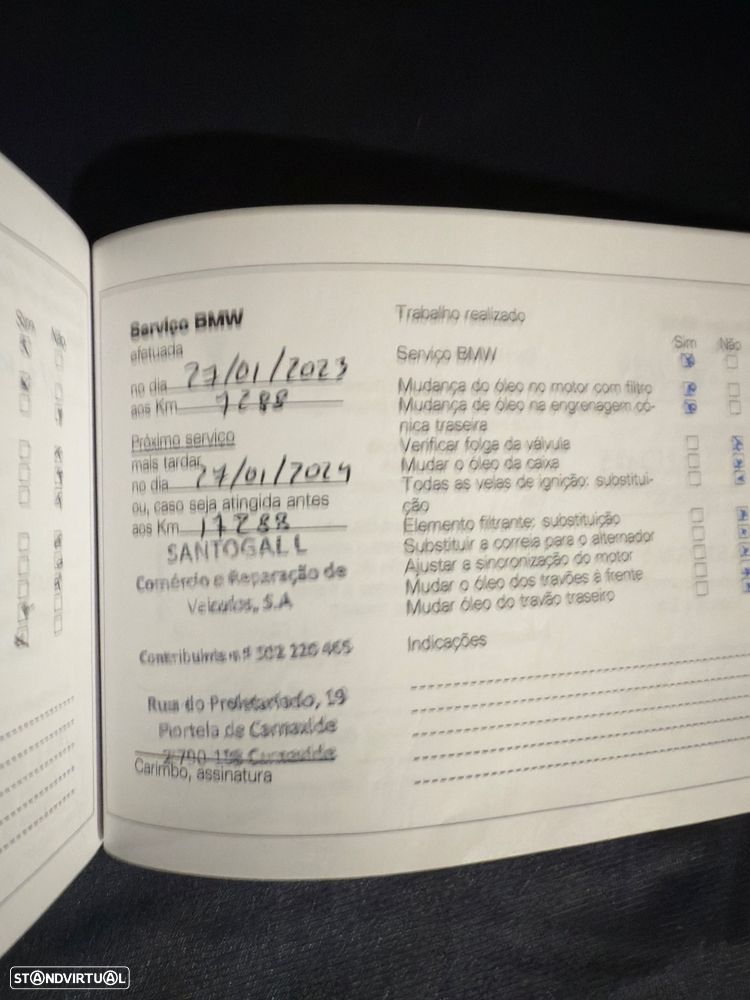 Não
Serviço BMW
efetuada
no dia 27/01/2023
aos Km 7288
Próximo serviço
mais tardar
no dia 27/01/2024
ou, caso seja atingida antes
aos Km 17288
SANTOGAL L
Comércio e Reparação de
Veículos, S.A
Contribuinte n.º 502 226 465
Rua do Proletariado, 19
Portela de Carnaxide
Carnaxide
Carimbo, assinatura
Trabalho realizado
Sim Não
Serviço BMW
Mudança do óleo no motor com filtro
Mudança de óleo na engrenagem có-
nica traseira
Verificar folga da válvula
Mudar o óleo da caixa
Todas as velas de ignição: substitui-
ção
Elemento filtrante: substituição
Substituir a correia para o alternador
Ajustar a sincronização do motor
Mudar o óleo dos travões à frente
Mudar óleo do travão traseiro
Indicações
STANDVIRTUAL